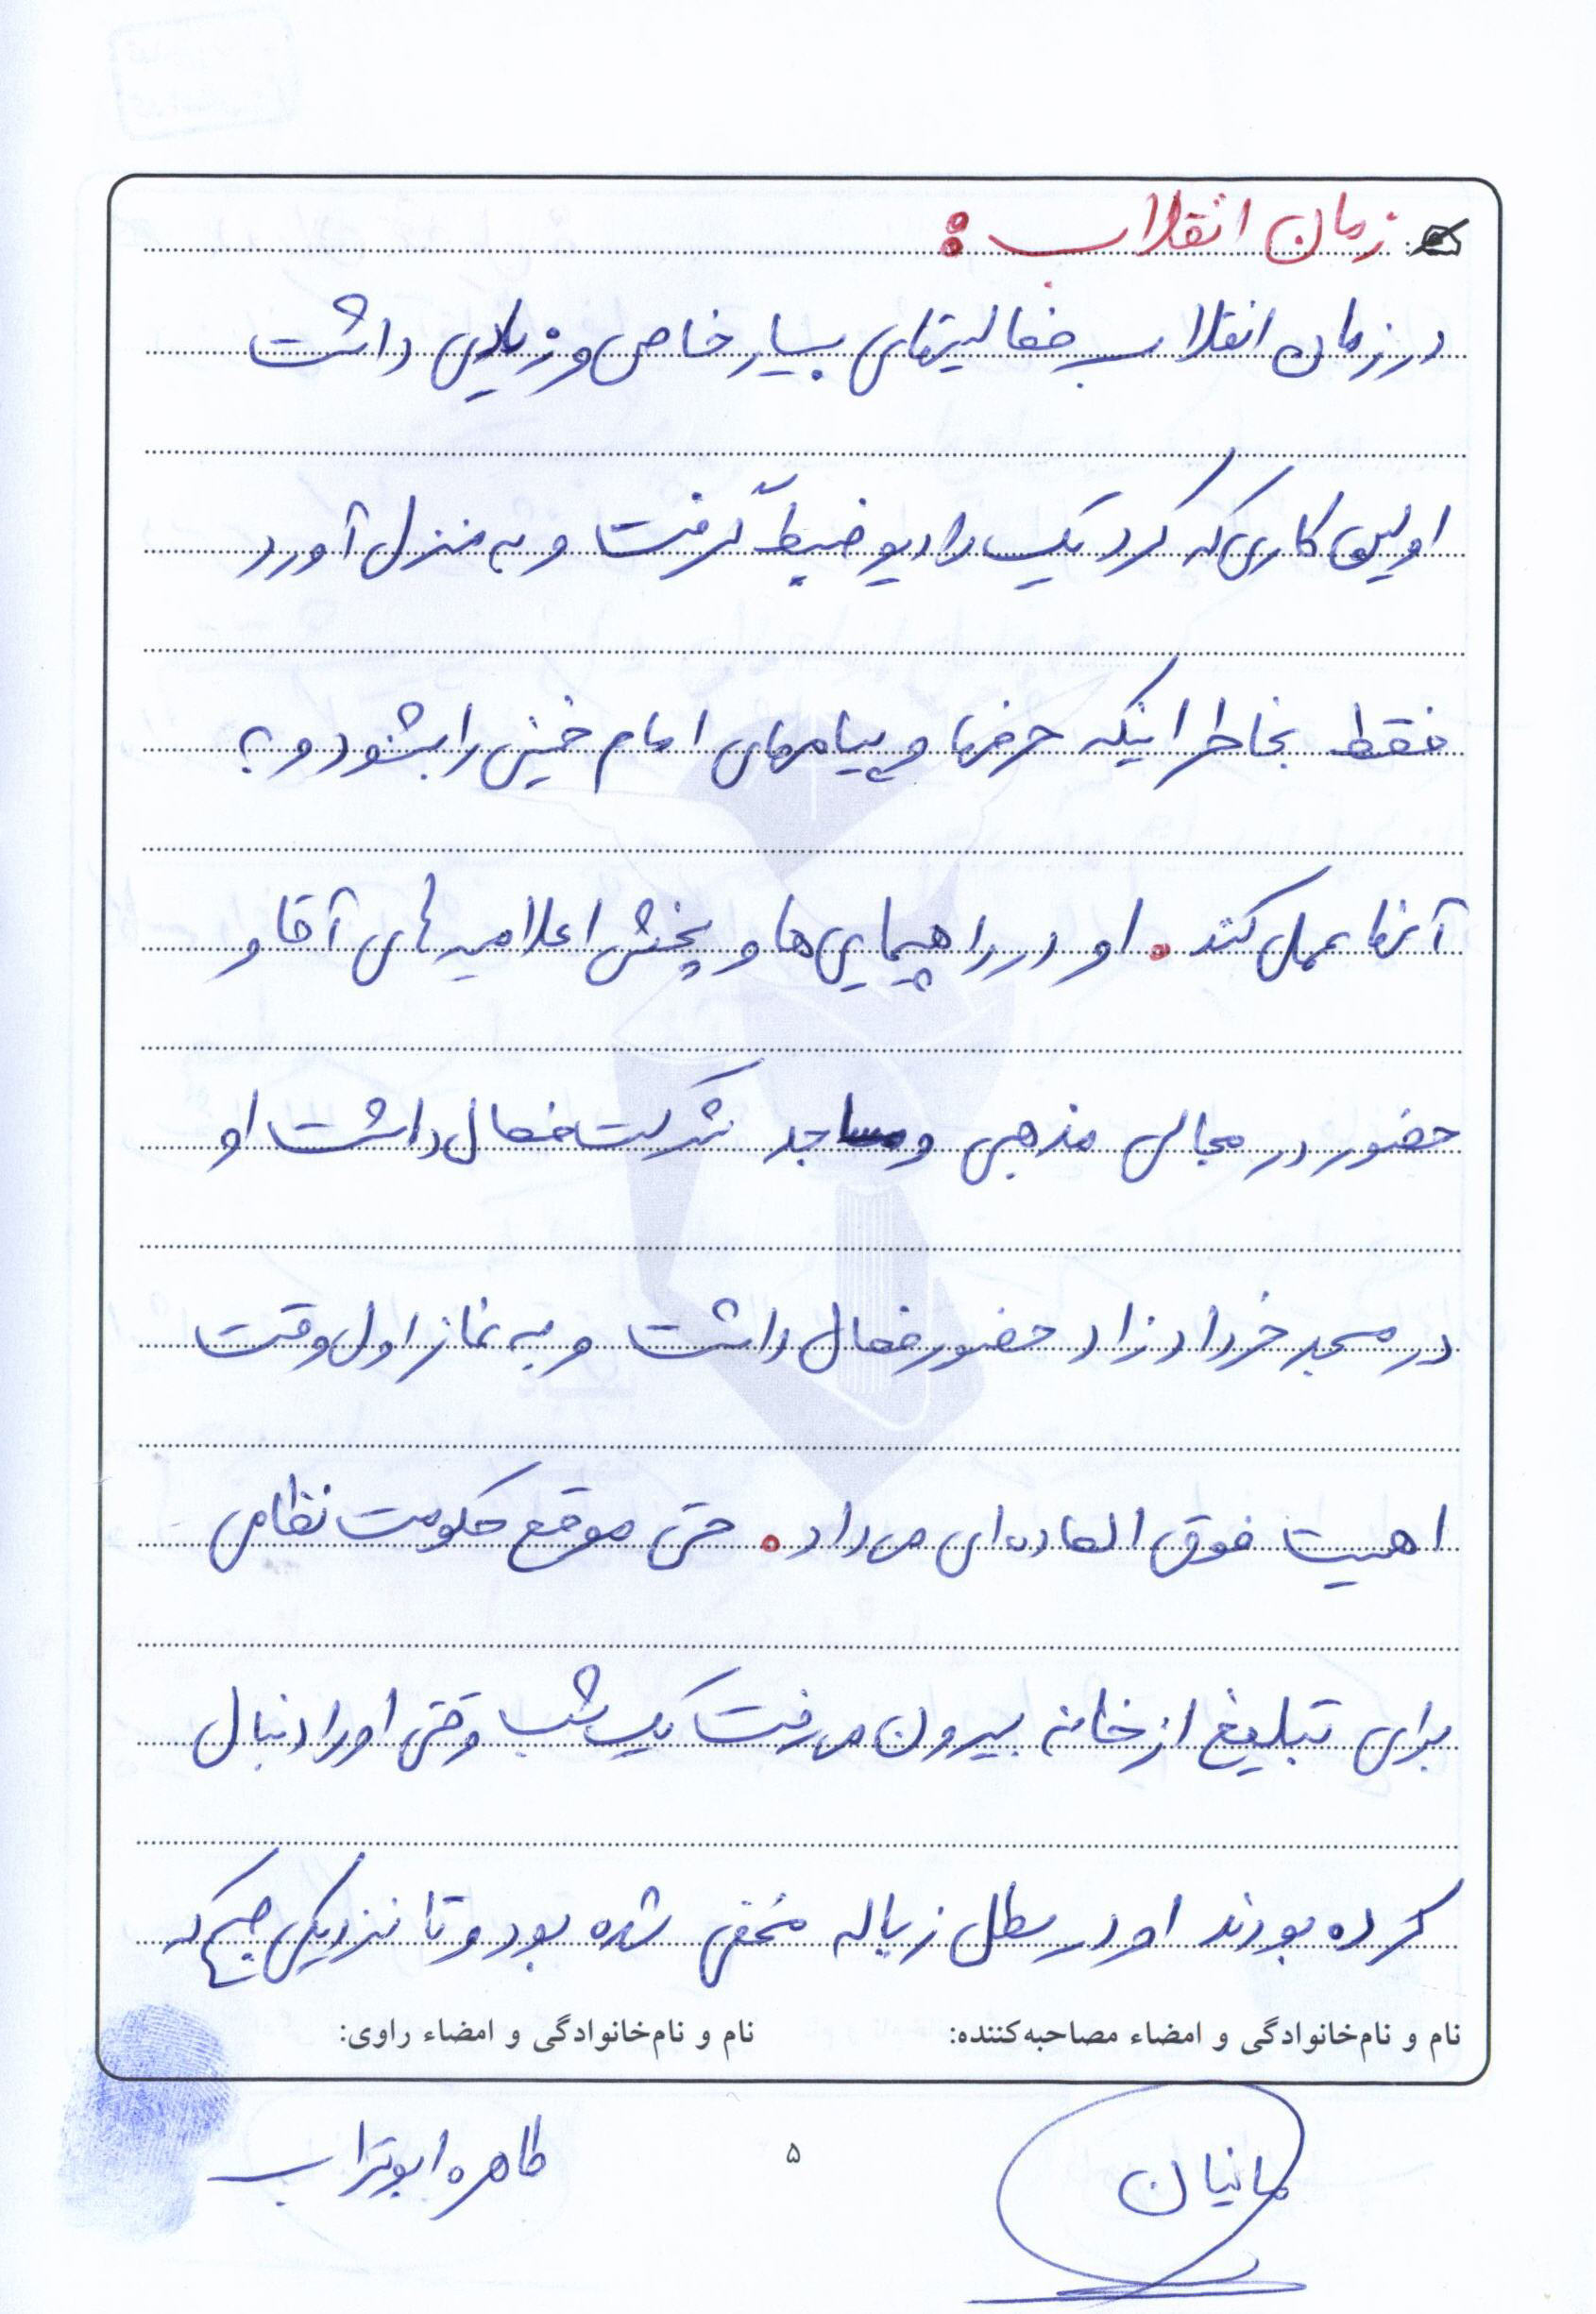 زمان انقلاب :
در زمان انقلاب فعالیتهای بسیار خاص و زیادی داشت
اولین کاری که کرد یک رادیو ضبط گرفت و به منزل آورد
فقط بخاطر اینکه حرفها و پیامهای امام خمینی را بشنود و به
آنها عمل کند . او در راهپیمایی ها و پخش اعلامیه های آقا و
حضور در مجالس مذهبی و مساجد شرکت فعال داشت او
در مسجد خردادزاد حضور فعال داشت و به نماز اول وقت
اهمیت فوق العاده ای می داد . حتی موقع حکومت نظامی
برای تبلیغ از خانه بیرون می رفت یک شب وقتی او را دنبال
کرده بودند او در سطل زباله مخفی شده بود و تا نزدیکی صبح که
نام و نام‌خانوادگی و امضاء مصاحبه‌کننده: نام و نام‌خانوادگی و امضاء راوی:
مانیان ۵ طاهره ابوتراب